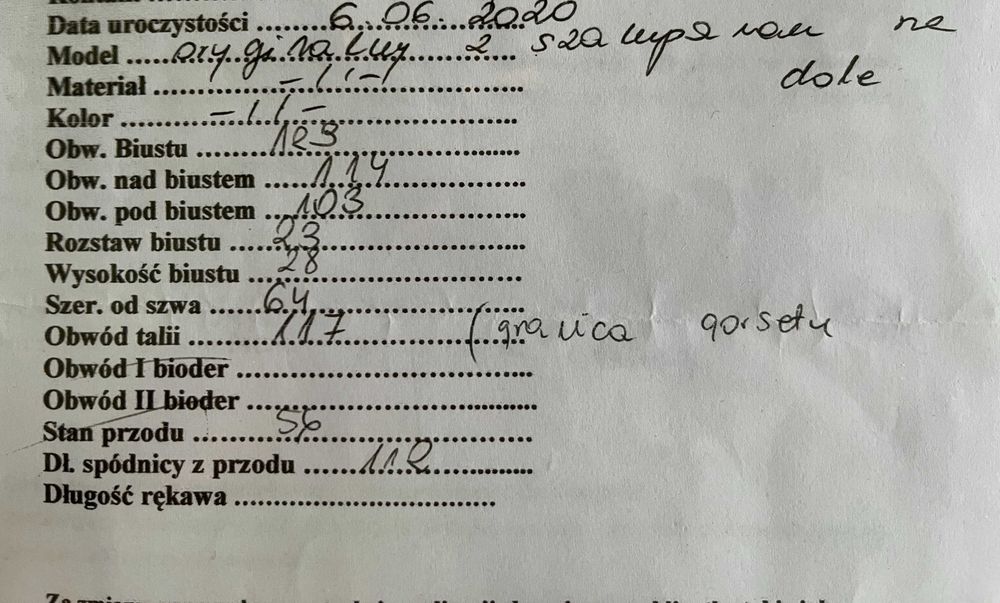 Data uroczystości ........6..06..2020
Model .....oryginalny 2 szampanem na
dole
Materiał ............-//-
Kolor ............-//-
Obw. Biustu ........123
Obw. nad biustem ......114
Obw. pod biustem ....103
Rozstaw biustu .....23
Wysokość biustu ....28
Szer. od szwa ......64
Obwód talii ........117 (granica gorsetu
Obwód I bioder ....................................
Obwód II bioder ....................................
Stan przodu ..........56
Dł. spódnicy z przodu ......112
Długość rękawa ................................